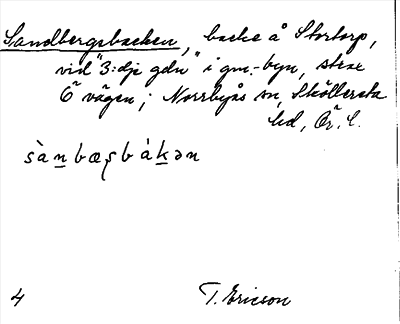 Sandbergsbacken, backe å Stortorp,
vid "3:dje gdn" i gm.-byn, strax
Ö vägen; Norrbyås sn, Sköllersta
hd, Ör. l.
sànbæʂbákən
4 T. Ericson